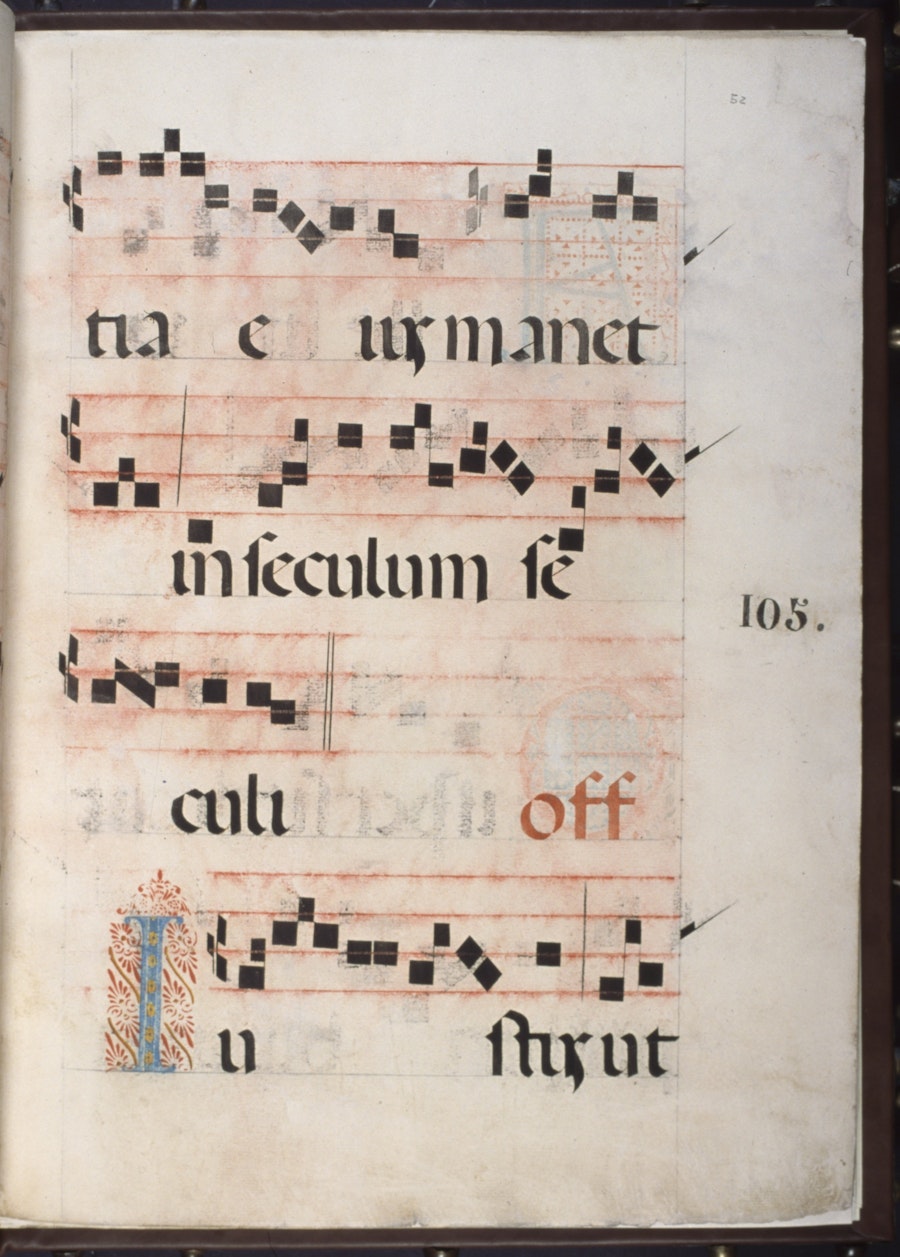 52
tia e ius manet
in seculum se
105.
culi off
Iu stus ut